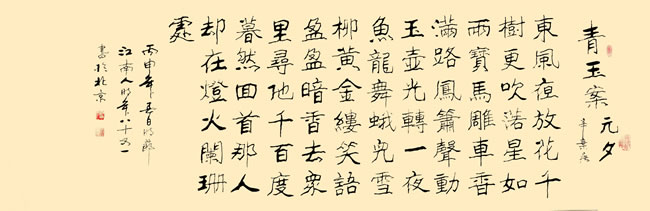 青玉案 元夕
辛棄疾
東風夜放花千
樹更吹落星如
雨寶馬雕車香
滿路鳳簫聲動
玉壺光轉一夜
魚龍舞蛾兒雪
柳黃金縷笑語
盈盈暗香去眾
里尋他千百度
暮然回首那人
却在燈火闌珊
處
丙申年
江南人 年八十五
書於北京